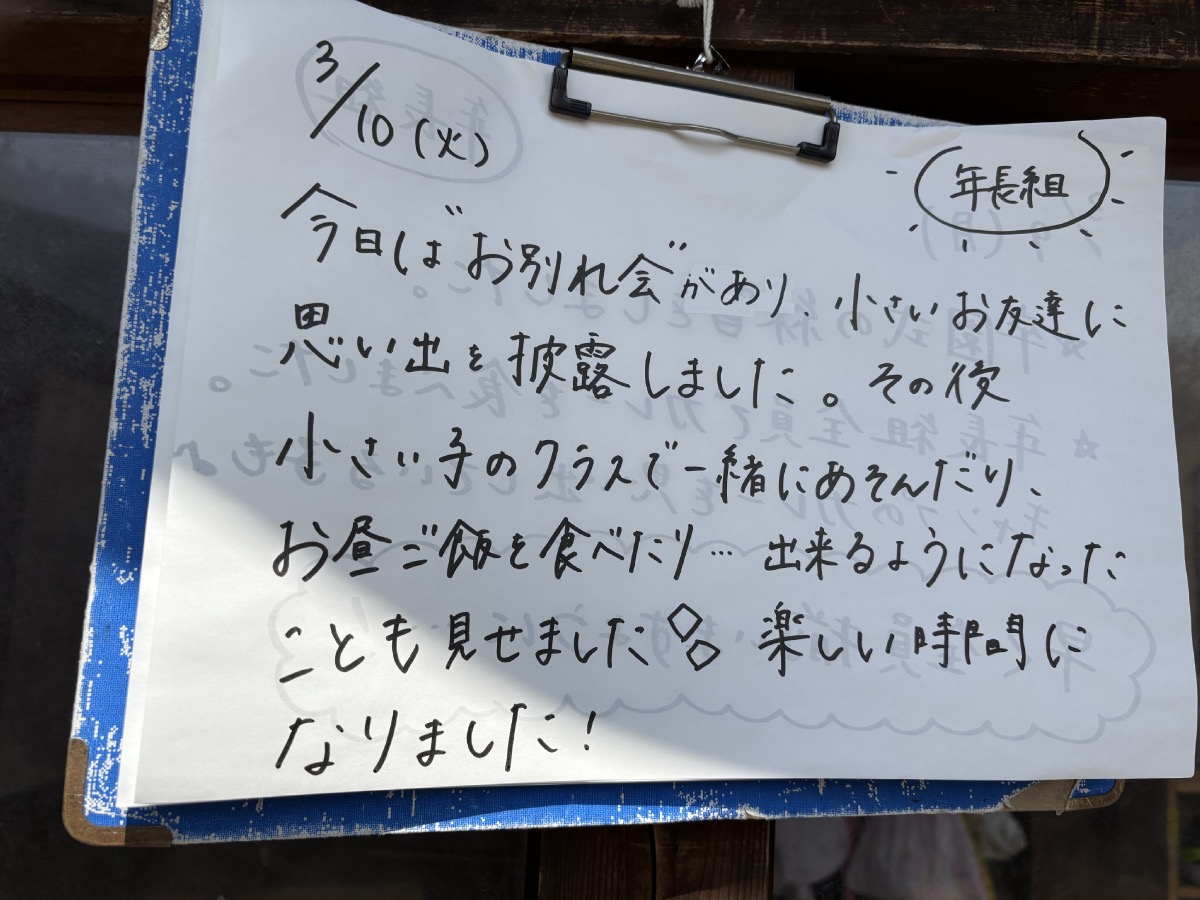 3/10(火)
年長組
今日は"お別れ会"があり、小さいお友達に
思い出を披露しました。その後
小さい子のクラスで一緒にあそんだり、
お昼ご飯を食べたり…出来るようになった
ことも見せました◇◇ 楽しい時間に
なりました!